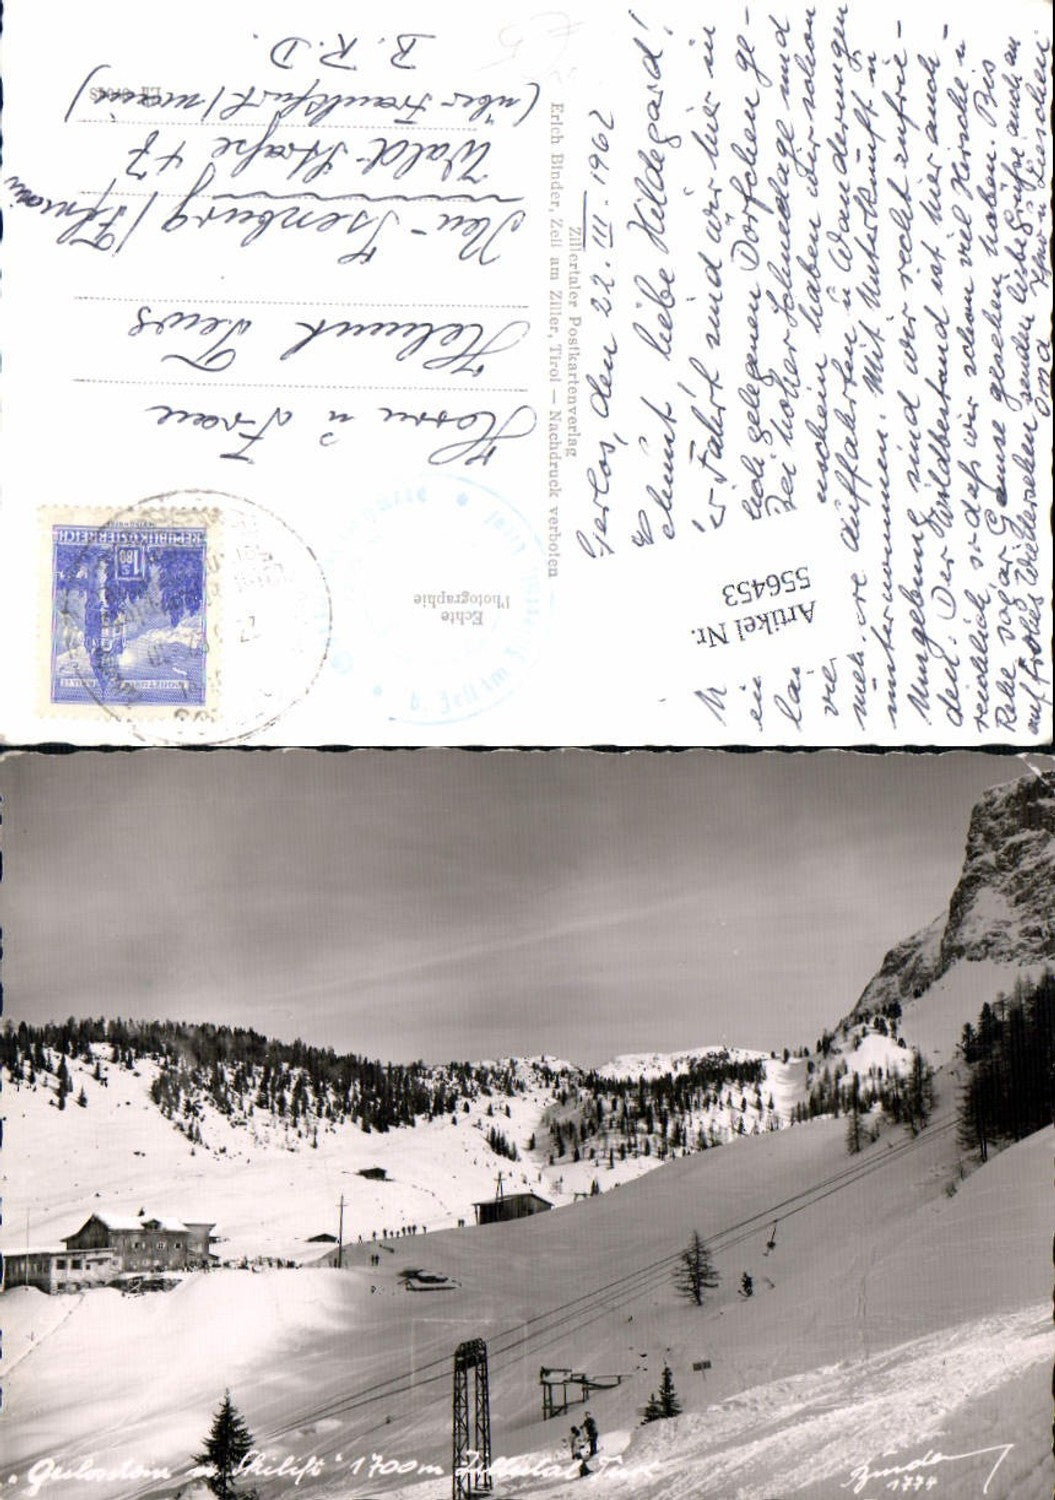 Gerlos, den 22. III. 1962
Helmut, liebe Hildegard!
Fahrt sind wir hier in
gelegenen Dörfchen ge-
Bei hoher Schneelage und
Sonnenschein haben wir schon
mehrere Auffahrten u Wanderungen
unternommen. Mit Unterkunft u
Umgebung sind wir recht zufrie-
den. Der Wildbestand ist hier auch
reichlich, so daß wir schon viel Hirsche u
Rehe sogar Gemse gesehen haben. Bis
auf frohes Wiedersehen senden liebe Grüße auch an
Oma
Artikel Nr.
556453
Zillertaler Postkartenverlag
Erich Binder, Zell am Ziller, Tirol — Nachdruck verboten
Echte
Photographie
REPUBLIK ÖSTERREICH
1.80
Herrn u Frau
Helmut
Neu-Isenburg/
Wald-Straße 47
(über Frankfurt/Main)
B.R.D.
"Gerlosstein u Skilift" 1700m Zillertal Tirol
Binder
1774